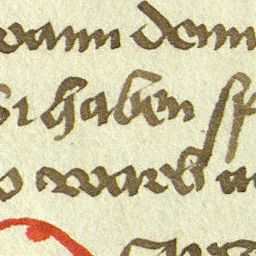 wann denn
si haben sp
o warb